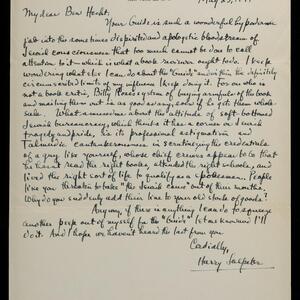 May 25, 19
My dear Ben Hecht:
Your Guide is such a wonderful hypodermic
jab into the sometimes dispirited and apologetic bloodstream of
Jewish consciousness that too much cannot be done to call
attention to it — which is what a book reviewer ought to do. I keep
wondering what else I can do about the "Guide" and within the definitely
circumscribed limits of my influence I keep doing it. For one who is
not a book critic, Billy Rose's system of buying armfuls of the book
and mailing them out is as good as any, even if he gets them whole-
sale. What a about the attitude of soft-bottomed
Jewish bureaucracy, which thinks it has a corner on Jewish
tragedy and pride, is its professional astigmatism and
Talmudic cantankerousness in scrutinizing the credentials
of a guy like yourself, whose chief crime appears to be that
he hasn't read the right books, attended the right schools, and
lived the right sort of life to qualify as a spokesman. People
like you threaten to take "the Jewish cause" out of their mouths.
Why do you suddenly add their line to your old stock of goods?
Anyway, if there is anything I can do to squeeze
another peep out of myself for the "Guide" let me know and I'll
do it. And I hope we haven't heard the last from you.
Cordially,
Harry Salpeter